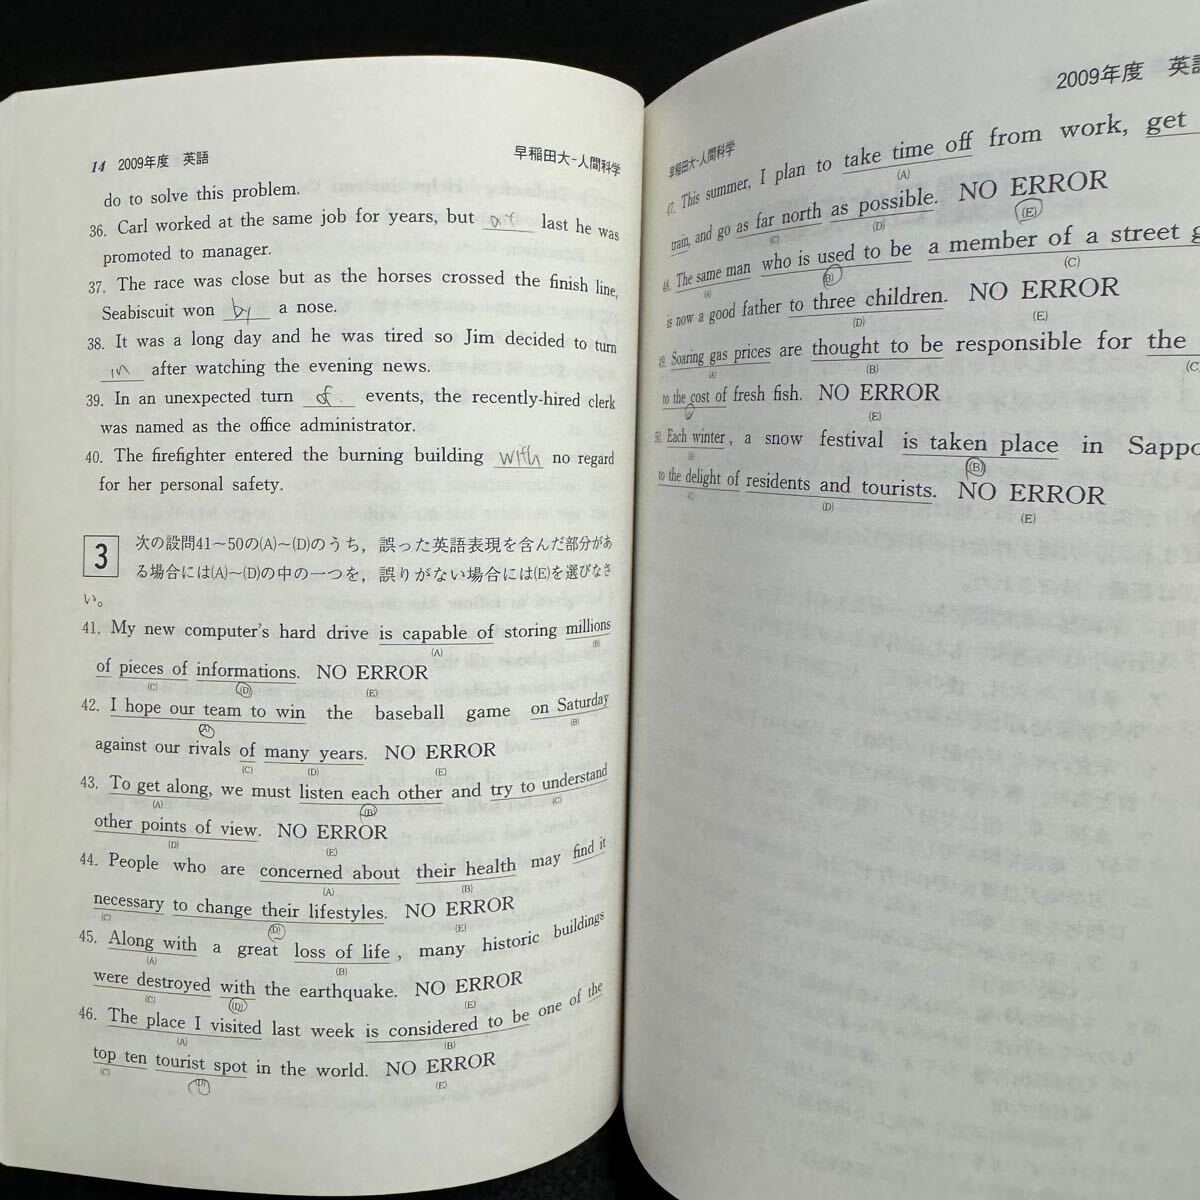 14 2009年度 英語 早稲田大-人間科学
do to solve this problem.
36. Carl worked at the same job for years, but at last he was
promoted to manager.
37. The race was close but as the horses crossed the finish line,
Seabiscuit won by a nose.
38. It was a long day and he was tired so Jim decided to turn
in after watching the evening news.
39. In an unexpected turn of events, the recently-hired clerk
was named as the office administrator.
40. The firefighter entered the burning building with no regard
for her personal safety.
3 次の設問41～50の(A)～(D)のうち，誤った英語表現を含んだ部分があ
る場合には(A)～(D)の中の一つを，誤りがない場合には(E)を選びなさ
い。
41. My new computer's hard drive is capable of storing millions
(A) (B)
of pieces of informations. NO ERROR
(C) (D) (E)
42. I hope our team to win the baseball game on Saturday
(A) (B)
against our rivals of many years. NO ERROR
(C) (D) (E)
43. To get along, we must listen each other and try to understand
(A) (B) (C)
other points of view. NO ERROR
(D) (E)
44. People who are concerned about their health may find it
(A) (B)
necessary to change their lifestyles. NO ERROR
(C) (D) (E)
45. Along with a great loss of life, many historic buildings
(A) (B)
were destroyed with the earthquake. NO ERROR
(C) (D) (E)
46. The place I visited last week is considered to be one of the
(A) (B)
top ten tourist spot in the world. NO ERROR
(C) (D) (E)
2009年度 英語
早稲田大-人間科学
47. This summer, I plan to take time off from work, get
(A)
train, and go as far north as possible. NO ERROR
(C) (D) (E)
48. The same man who is used to be a member of a street g
(A) (B) (C)
is now a good father to three children. NO ERROR
(D) (E)
49. Soaring gas prices are thought to be responsible for the
(A) (B) (C
to the cost of fresh fish. NO ERROR
(E)
50. Each winter, a snow festival is taken place in Sappo
(A) (B)
to the delight of residents and tourists. NO ERROR
(C) (D) (E)